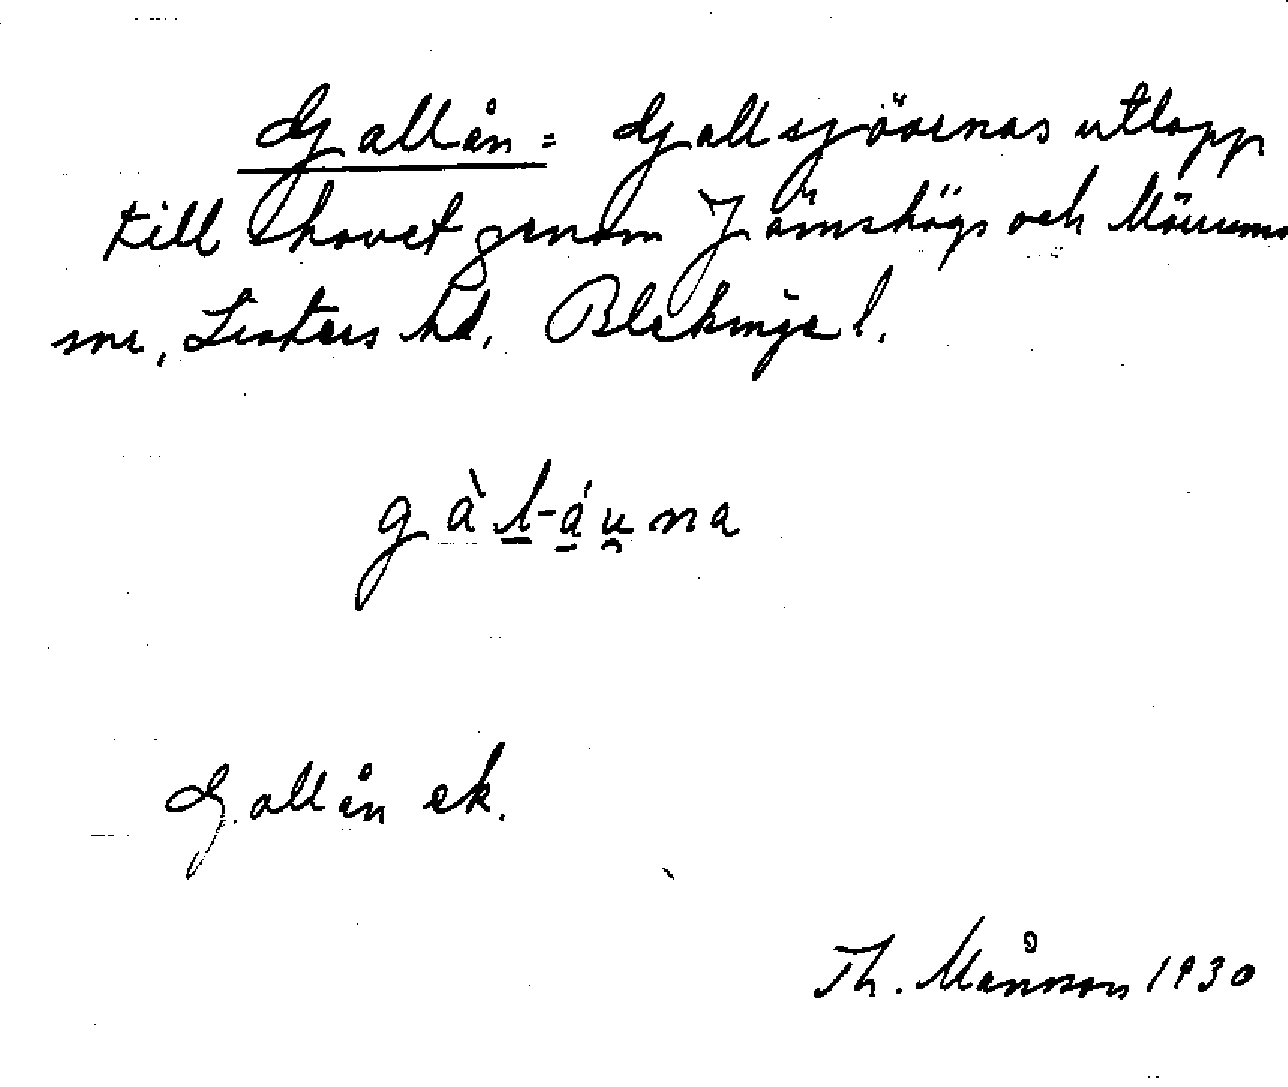 Gallån = Gallsjöarnas utlopp
till havet genom Jämshögs och Mörrums
snr, Listers hd, Blekinge l.
gàl-áu̯na
Gallån ek.
Th. Månsson 1930